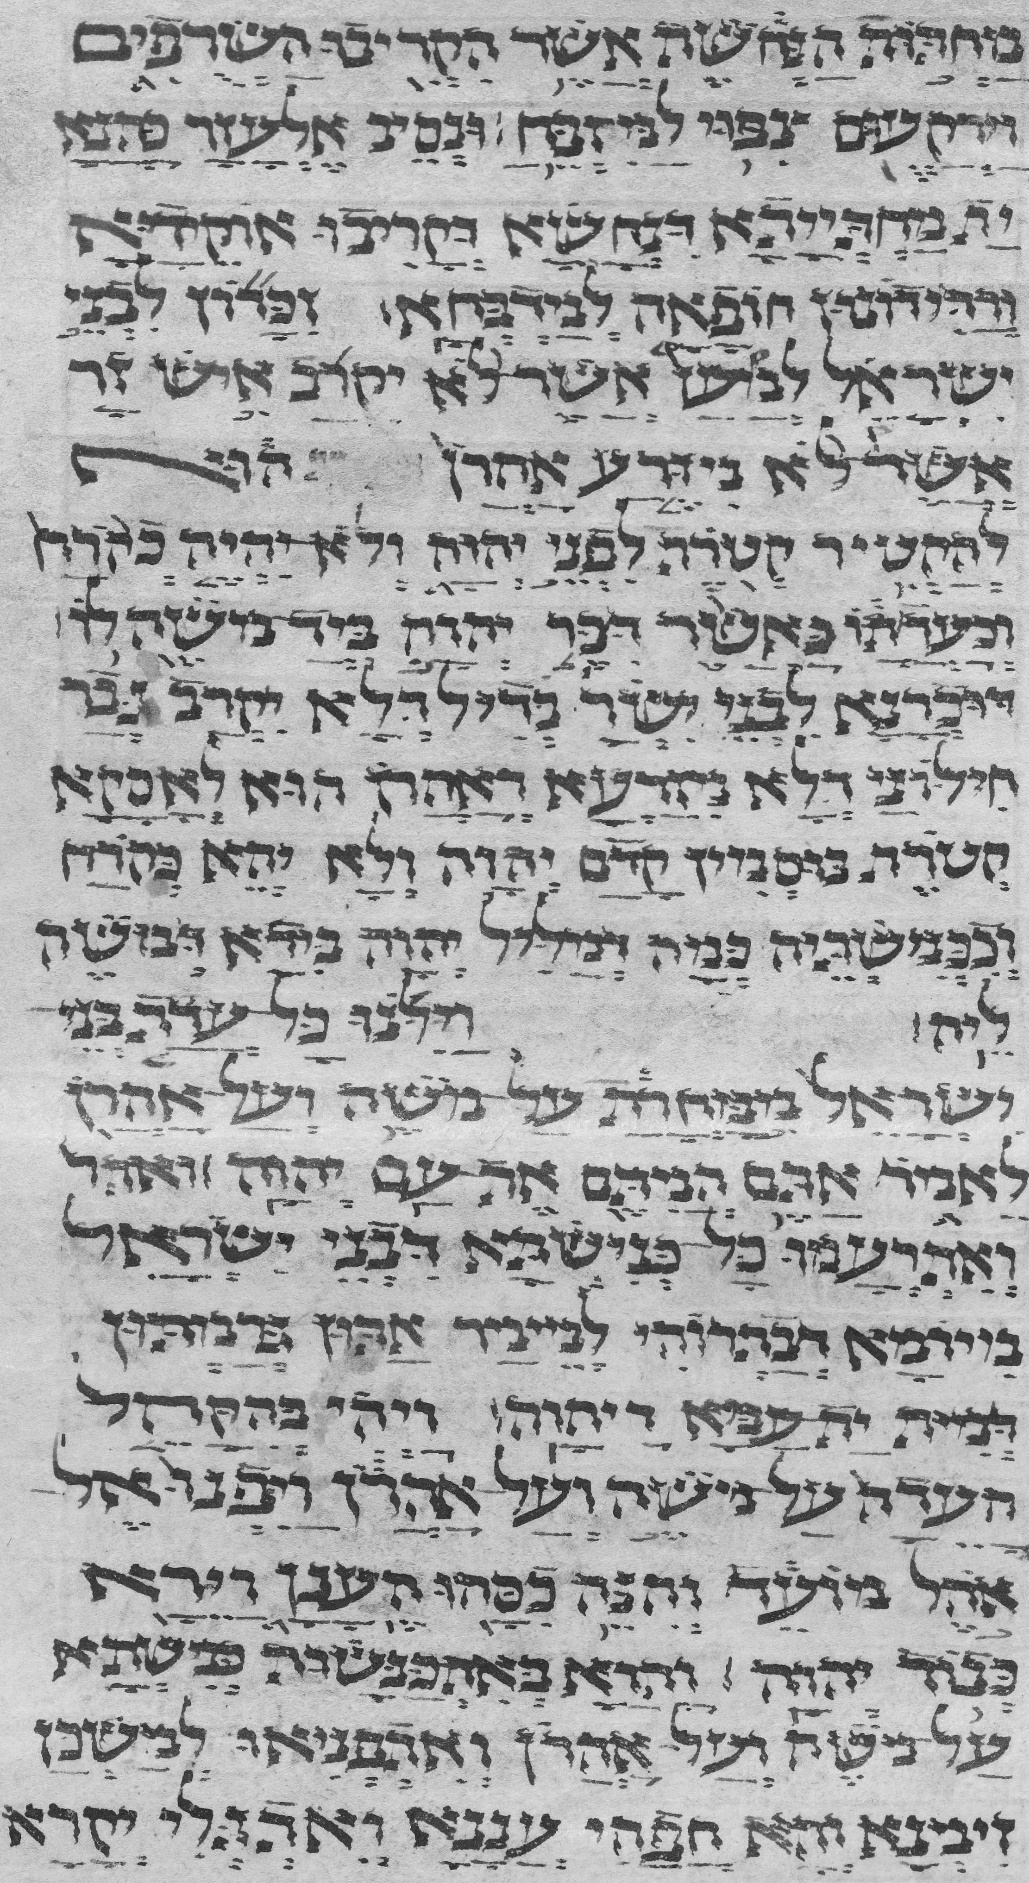 מחתות הנחשת אשר הקריבו השרפים
וירקעום צפוי למזבח ׃ ונסיב אלעזר כהנא
ית מחתייתא דנחשא דקריבו אוקדיא
ורדידונון חופאה למדבחא ׃ זכרון לבני
ישראל למען אשר לא יקרב איש זר
אשר לא מזרע אהרן הוא
להקטיר קטרת לפני יהוה ולא יהיה כקרח
וכעדתו כאשר דבר יהוה ביד משה לו ׃
דוכרנא לבני ישר בדיל דלא יקרב גבר
חילוני דלא מזרעא דאהרן הוא לאסקא
קטרת בוסמין קדם יהוה ולא יהא כקרח
וככנשתיה כמה דמליל יהוה בידא דמשה
ליה ׃ וילנו כל עדת בני
ישראל ממחרת על משה ועל אהרן
לאמר אתם המתם את עם יהוה ׃
ואתרעמו כל כנישתא דבני ישראל
ביומא דבתרוהי למימר אתון גרמתון
דמית יתעמא דיהוה ׃ ויהי בהקהל
העדה על משה ועל אהרן ויפנו אל
אהל מועד והנה כסהו הענן וירא
כבוד יהוה ׃ והוא באתכנשות כנשתא
על משה ועל אהרן ואתפניאו למשכן
זימנא והא חפהי עננא ואתגלי יקרא